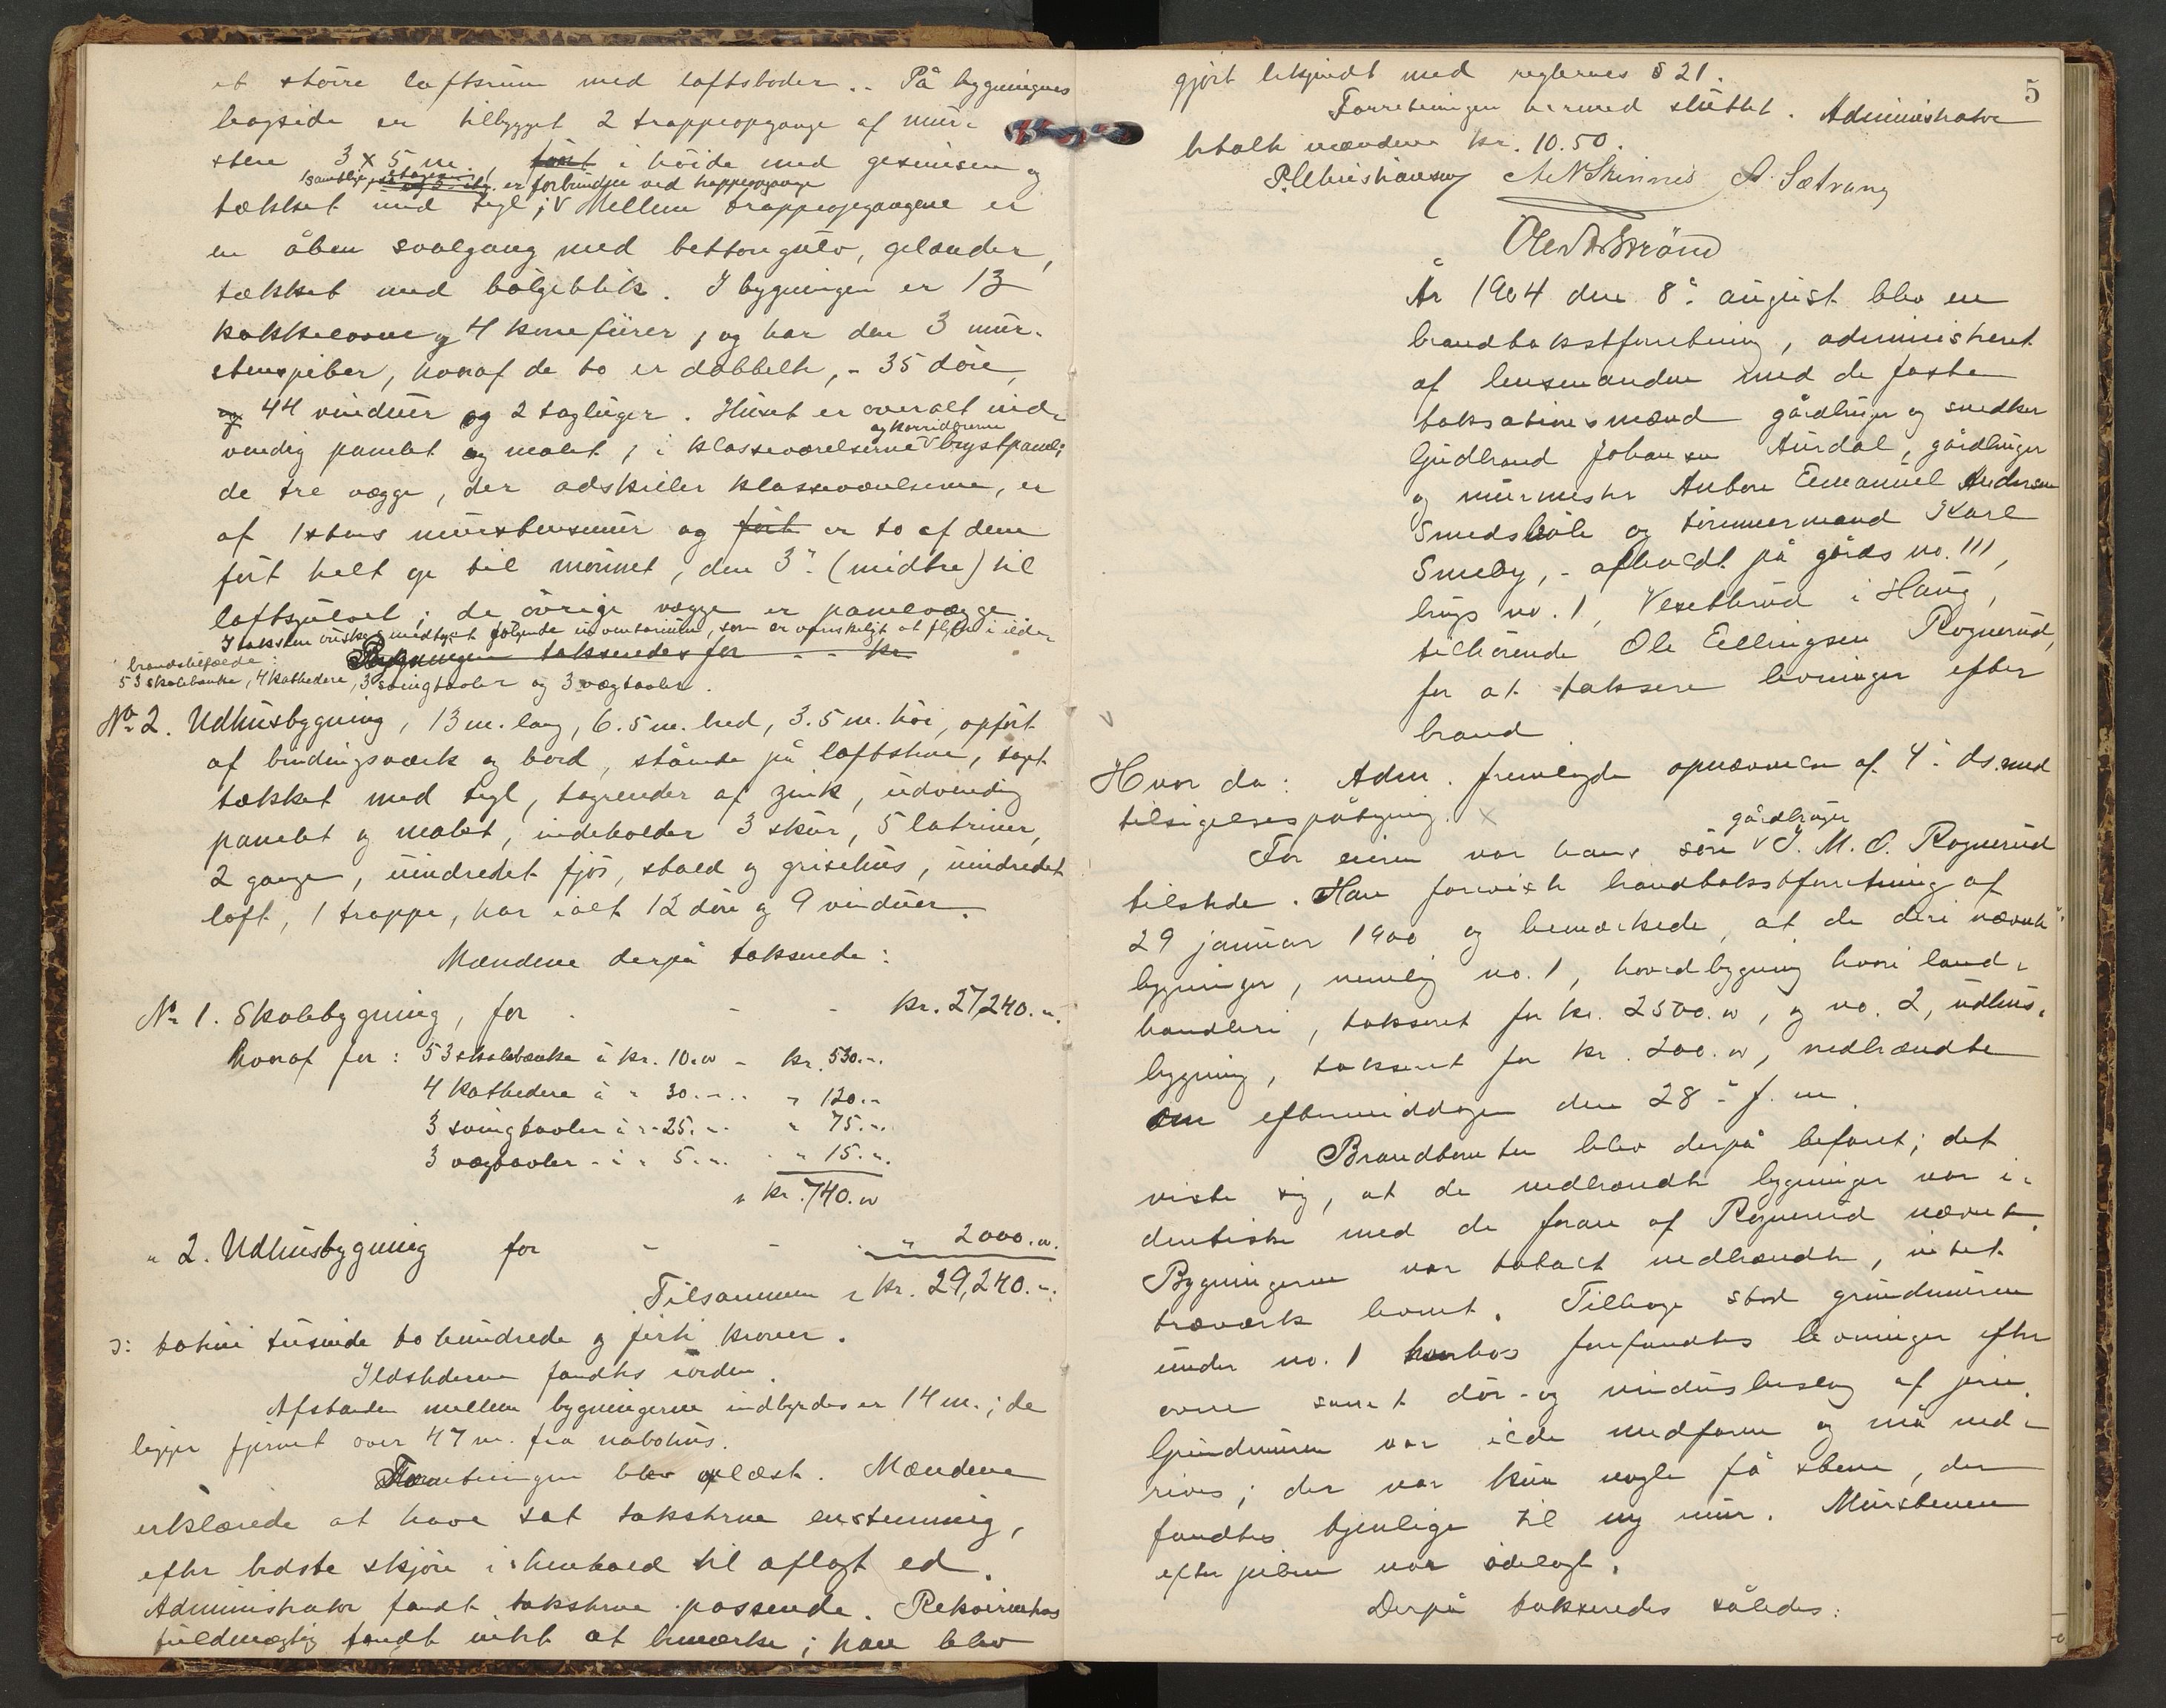 et större loftsrum med loftsboder.. På bygningens
bagside er tilbygget 2 trappeopgange af mur-
sten 3 x 5 m., ført i höide med gesimsen og
samtlige er forbundne ved trappeopgange
tækket med tegl; v Mellem trappeopgangene er
en åben svalgang med bettongulv, gelænder,
tækket med bölgeblik. I bygningen er 13
kakkelovne og 4 komfurer, og har den 3 mur-
stenspiber, hvoraf de to er dobbelte, - 35 döre,
og 44 vinduer og 2 tagluger. Huset er overalt ind-
og korridorerne
vendig panelet og malet, i klasseværelserne v brystpanel;
de tre vægge, der adskiller klasseværelserne, er
af 1stens murstensmur og ført er to af dem
ført helt op til mönnet, den 3die (midtre) til
loftsgulvet; de övrige vægge er panelvægge.
I taksten önskes medtaget følgende inventarium, som er vanskeligt at flytte i ilde-
Bygningen takseredes for - - kr.
brandstilfælde:
53 skolebænke, 4 kathedere, 3 svingtavler og 3 vægtavler.
No 2. Udhusbygning, 13 m. lang, 6.5 m. bred, 3.5 m. höi, opført
af bindingsværk og bord, stående på loftstene, tagt
tækket med tegl, tagrender af zink, udvendig
panelet og malet, indeholder 3 skur, 5 latriner,
2 gange, uindredet fjös, stald og grisehus, uindredet
loft, 1 trappe, har ialt 12 döre og 9 vinduer.
Mændene derpå takserede:
No 1. Skolebygning, for - - - kr. 27,240.-.
hvoraf for: 53 skolebænke à kr. 10.00 - kr. 530.-.
4 kathedere à " 30.-.. " 120.-
3 svingtavler à "-25.-. " 75.-.
3 vægtavler - à " 5.-. " 15.-.
" kr. 740.00
" 2. Udhusbygning for - - - " 2000.00.
Tilsammen " kr. 29,240.-.
ɔ: totini tusinde to hundrede og førti kroner.
Ildstederne fandtes iorden.
Afstanden mellem bygningerne indbyrdes er 14 m.; de
ligger fjernet over 47 m. fra nabohus.
Forretningen blev oplæst. Mændene
erklærede at have sat taksterne enstemmig,
efter bedste skjön i henhold til aflagt ed.
Administrator fandt taksterne passende. Rekvirentens
fuldmægtig fandt intet at bemærke; han blev
5
gjört bekjendt med reglernes § 21.
Forretningen hermed sluttet. Administrator
betalte mændene kr. 10.50.
P. Christiansen A N Skinnes A. Sætrang
Ole A Strönd
År 1904 den 8de august blev en
brandtakstforretning, administreret
af lensmanden med de faste
taksationsmænd gårdbruger og snedker
Gudbrand Johansen Aurdal, gårdbruger
og murmester Anton Emanuel Andersen
Smedshöle og tömmermand Karl
Smeby, - afholdt på gårds no. 111,
brugs no. 1, Vesetbrud i Haug,
tilhörende Ole Ellingsen Rognerud,
for at taksere levninger efter
brand
Hvor da: Adm. fremlagde opnævnelse af 4de ds. med
tilsigelsespåtegning. X
gårdbruger
For eieren var hans sön v J. M. O. Rognerud
tilstede. Han foreviste brandtakstforretning af
29 januar 1900 og bemærkede, at de deri nævnte
bygninger, nemlig no. 1, hovedbygning hvori land-
handleri, takseret for kr. 2500.00, og no. 2, udhus-
bygning, takseret for kr. 200.00, nedbrændte
om eftermiddagen den 28de f. m.
Brandtomten blev derpå befaret; det
viste sig, at de nedbrændte bygninger var i-
dentiske med de foran af Rognerud nævnte.
Bygningerne var totalt nedbrændte, intet
træværk levnet. Tilbage stod grundmuren
under no. 1 hvorhos forfandtes levninger efter
ovne samt dör- og vindusbeslag af jern.
Grundmuren var ilde medfaren og må ned-
rives; der var kun nogle få stene, der
fandtes tjenlige til ny mur. Murstenen
efter piben var ödelagt.
Derpå takseredes således: